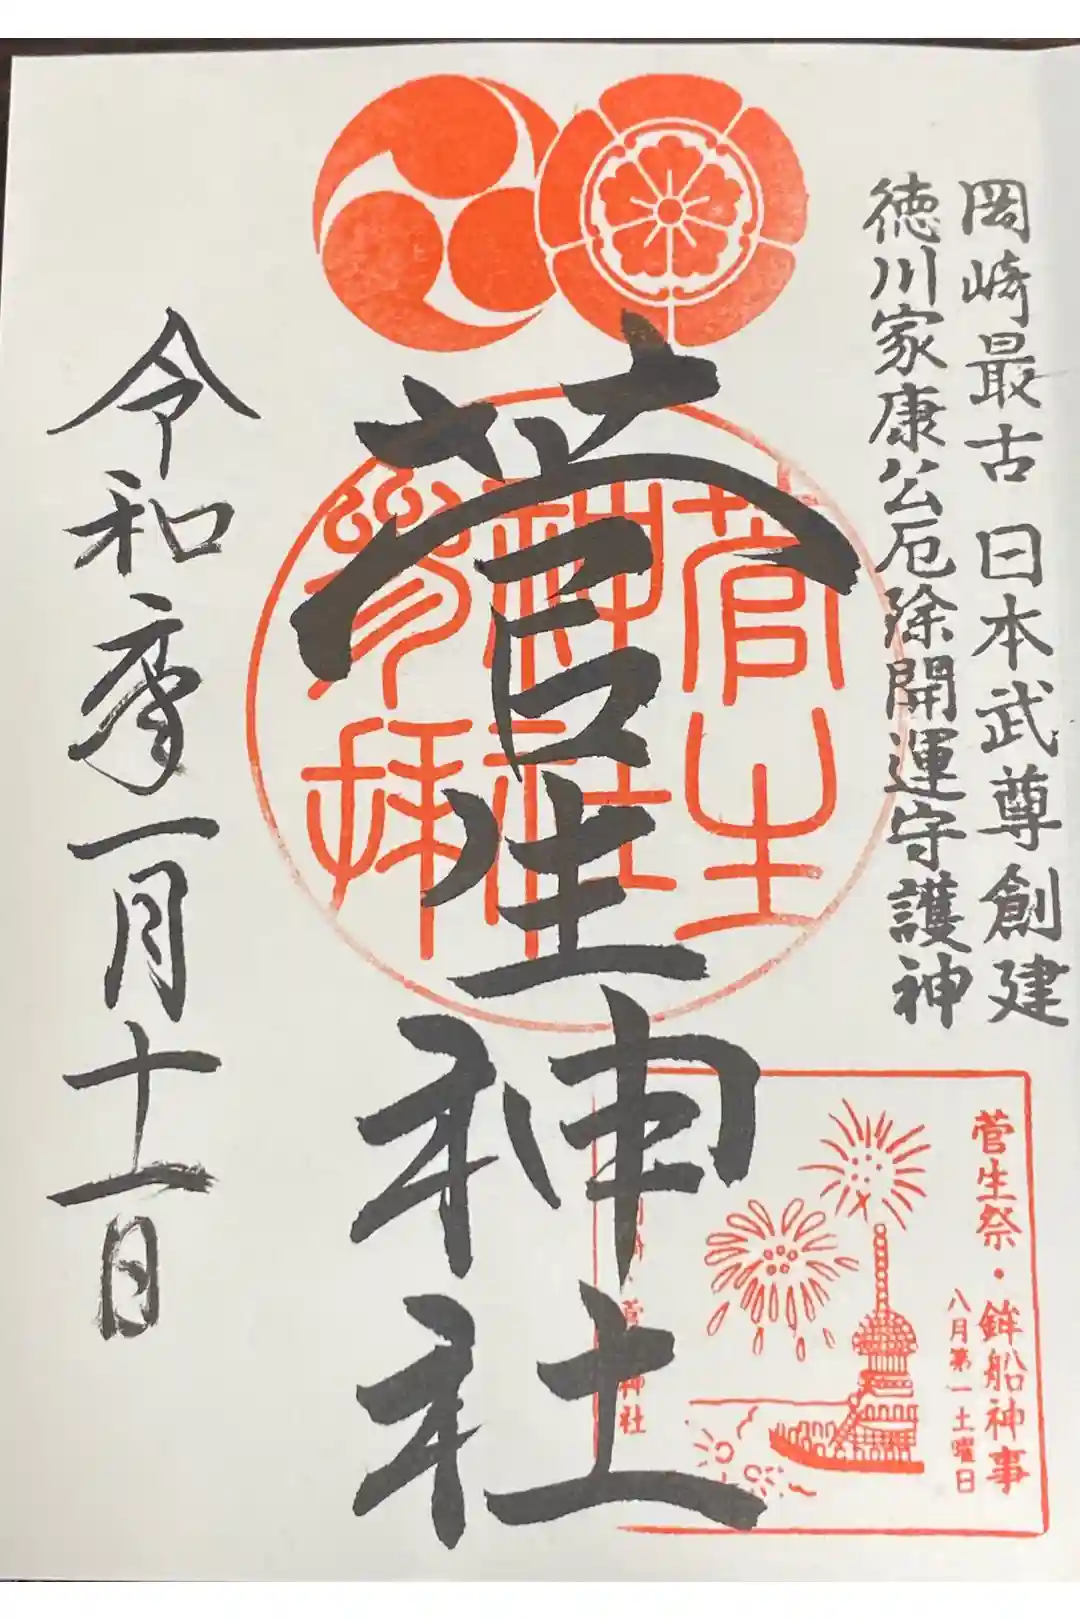 岡崎最古 日本武尊創建
徳川家康公厄除開運守護神
菅生
神社
参拝
菅生神社
菅生祭・鉾船神事
八月第一土曜日
神社
一月十一日
令和